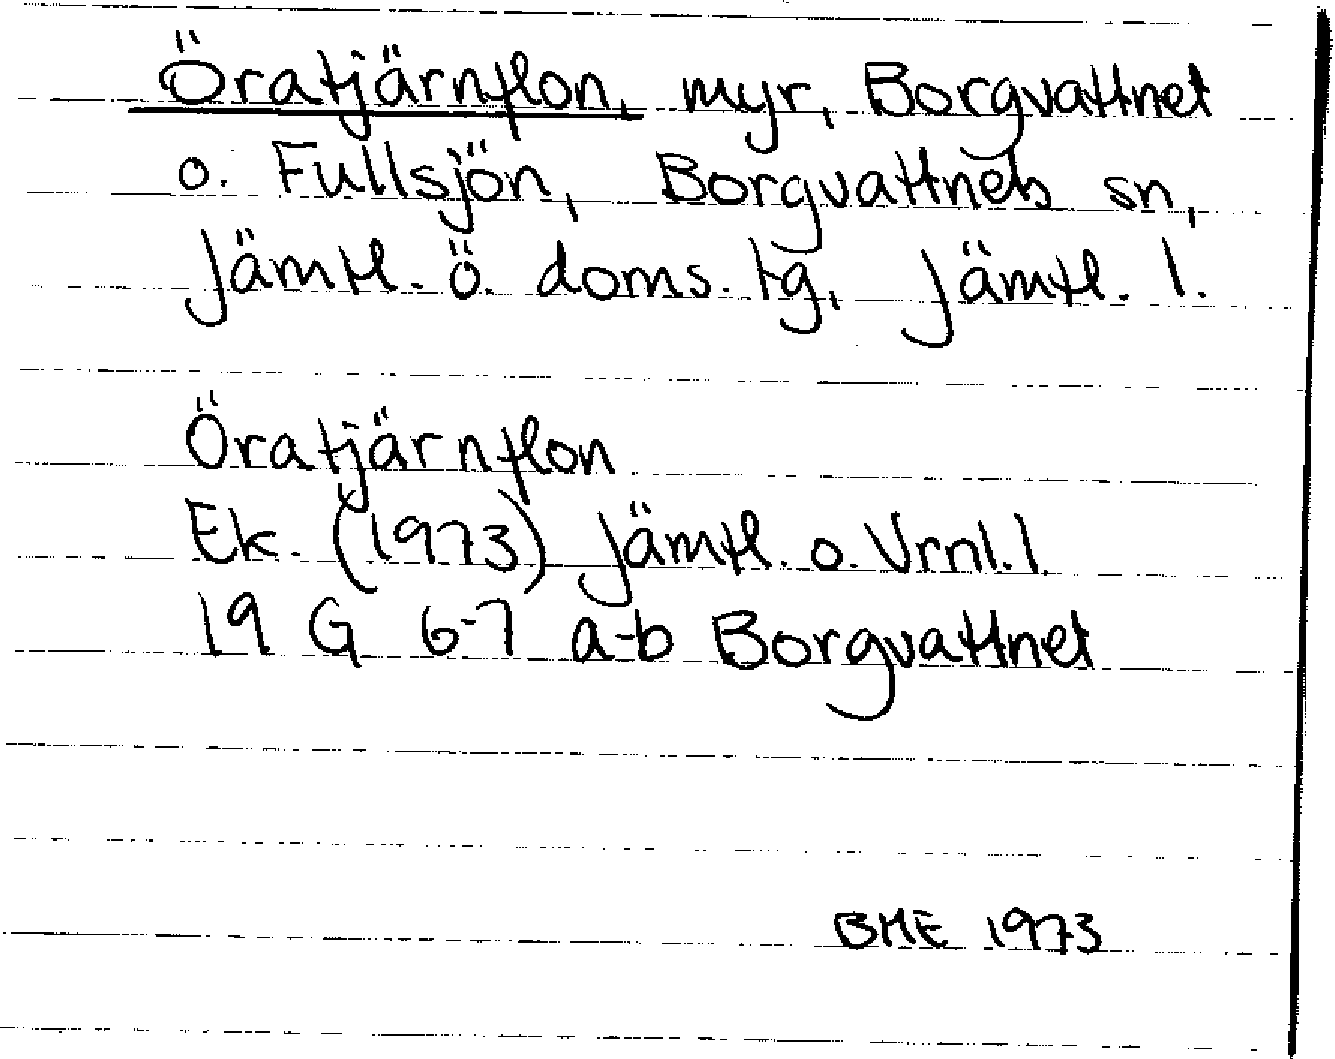 Öratjärnflon, myr, Borgvattnet
o. Fullsjön, Borgvattnets sn,
Jämtl. ö. doms. tg, Jämtl. l.
Öratjärnflon
Ek. (1973) Jämtl. o. Vrnl. l.
19 G 6-7 a-b Borgvattnet
BME 1973